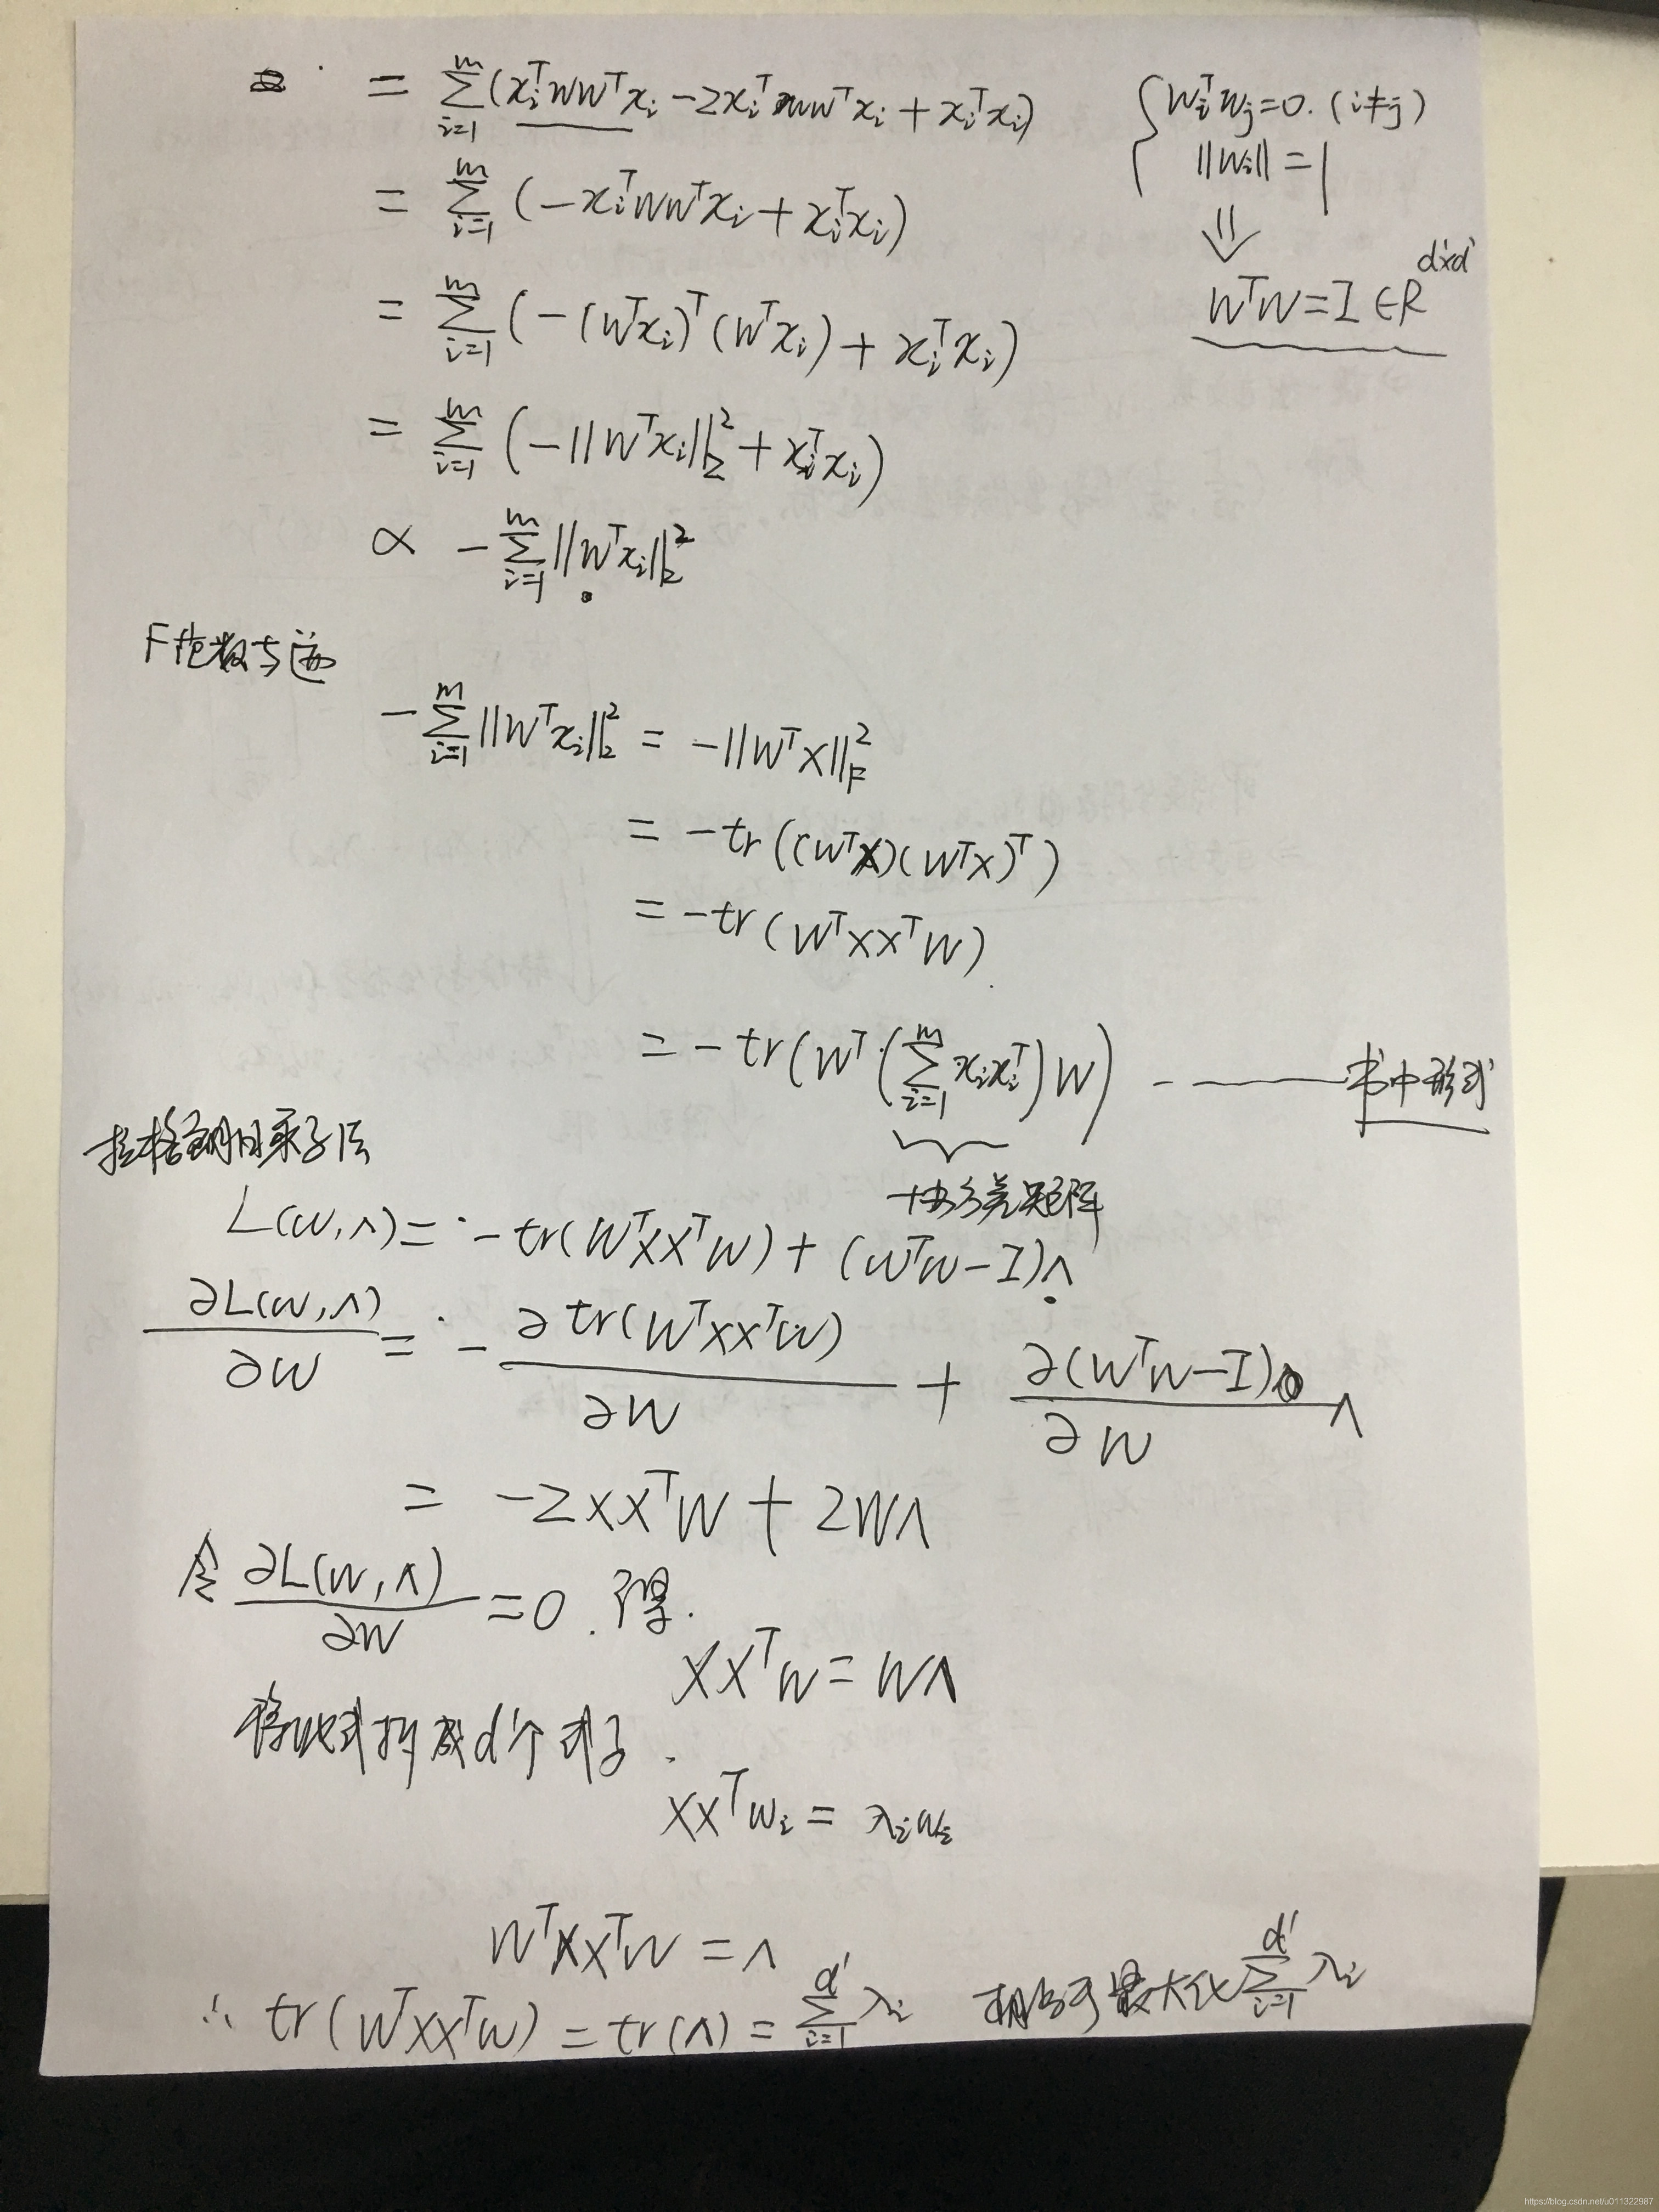 = ∑_{i=1}^{m} (x_i^T W W^T x_i - 2 x_i^T W W^T x_i + x_i^T x_i)
{ w_i^T w_j = 0. (i≠j)
‖w_i‖ = 1
⇓
W^T W = I ∈ R^{d'×d'}
= ∑_{i=1}^{m} (-x_i^T W W^T x_i + x_i^T x_i)
= ∑_{i=1}^{m} (-(W^T x_i)^T (W^T x_i) + x_i^T x_i)
= ∑_{i=1}^{m} (-‖W^T x_i‖_2^2 + x_i^T x_i)
∝ -∑_{i=1}^{m} ‖W^T x_i‖_2^2
F范数与迹
-∑_{i=1}^{m} ‖W^T x_i‖_2^2 = -‖W^T X‖_F^2
= -tr((W^T X)(W^T X)^T)
= -tr(W^T X X^T W)
= -tr(W^T (∑_{i=1}^{m} x_i x_i^T) W) - —— 书中形式
协方差矩阵
拉格朗日乘子法
L(W,Λ) = -tr(W^T X X^T W) + (W^T W - I)Λ
∂L(W,Λ)/∂W = -∂tr(W^T X X^T W)/∂W + ∂(W^T W - I)Λ/∂W
= -2XX^T W + 2WΛ
令 ∂L(W,Λ)/∂W = 0. 得.
XX^T W = WΛ
将此式拆成d'个式子.
XX^T w_i = λ_i w_i
W^T X X^T W = Λ
∴ tr(W^T X X^T W) = tr(Λ) = ∑_{i=1}^{d'} λ_i 相当于最大化 ∑_{i=1}^{d'} λ_i
https://blog.csdn.net/u011322987